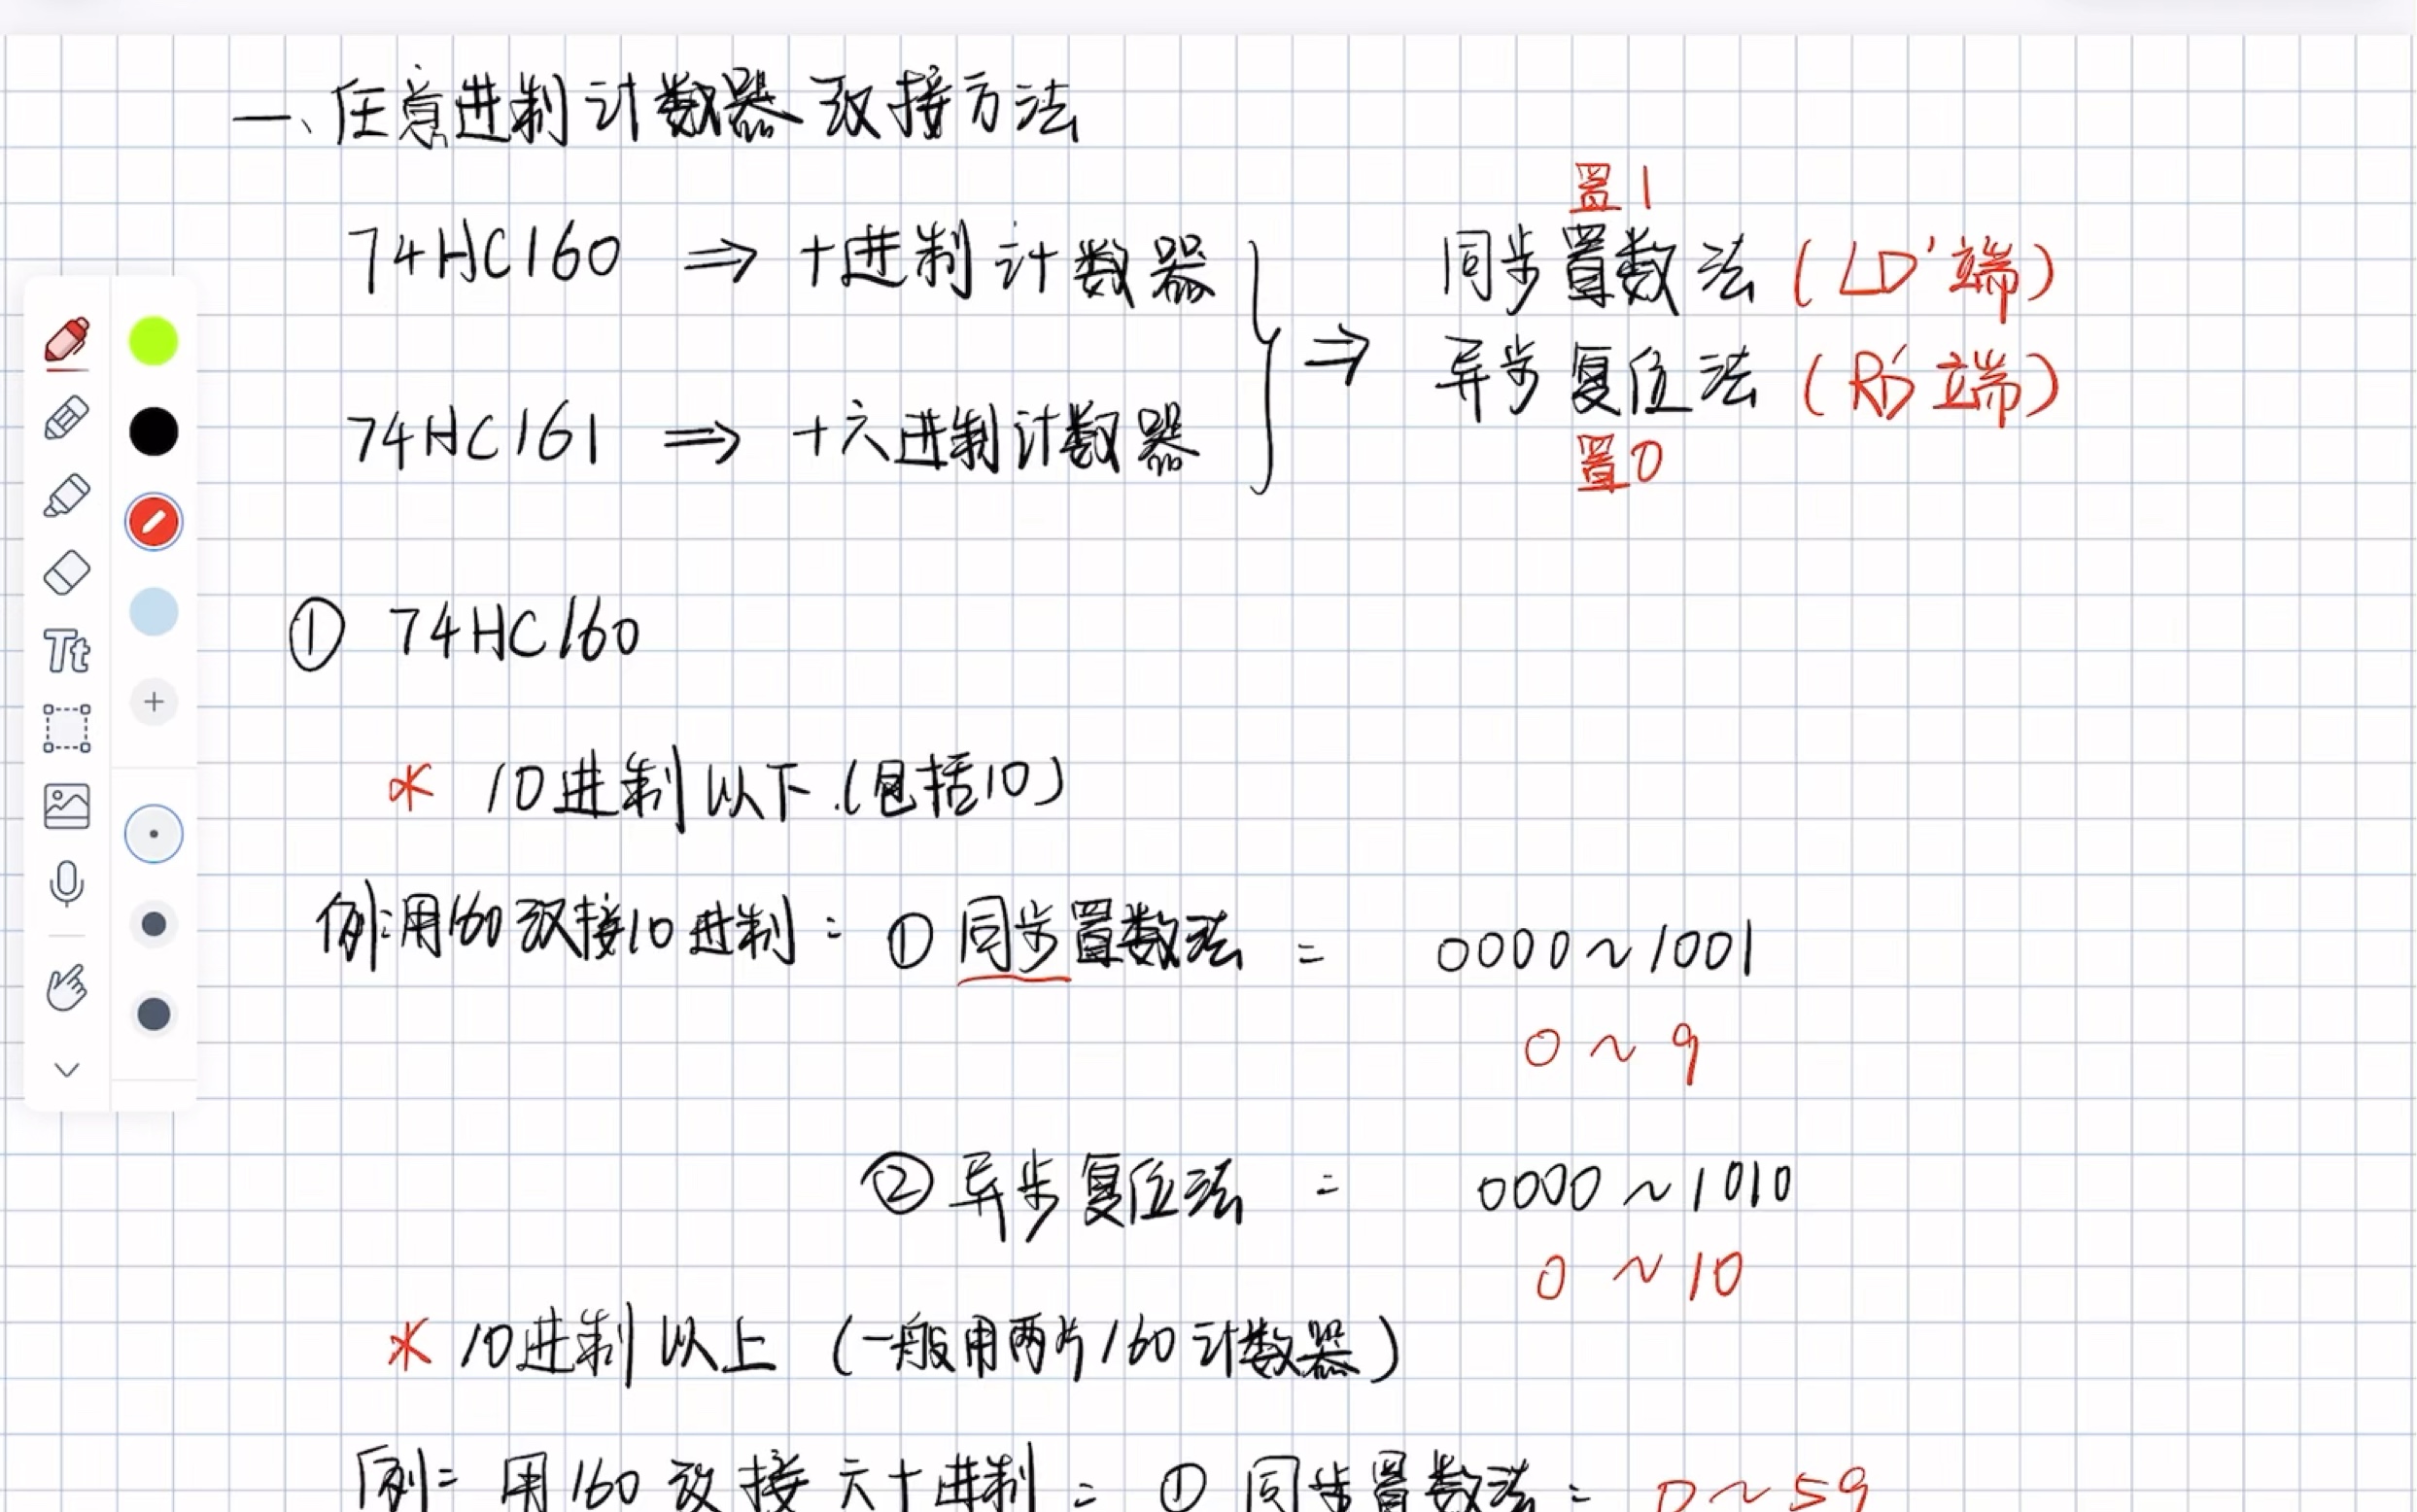 一、任意进制计数器改接方法
置1
74HC160 ⇒ 十进制计数器
同步置数法 (LD'端)
⇒
异步复位法 (RD'端)
74HC161 ⇒ 十六进制计数器
置0
① 74HC160
* 10进制以下.(包括10)
例:用160改接10进制: ①同步置数法: 0000~1001
0~9
②异步复位法: 0000~1010
0~10
* 10进制以上 (一般用两片160计数器)
例: 用160改接六十进制: ①同步置数法: 0~59
Tt